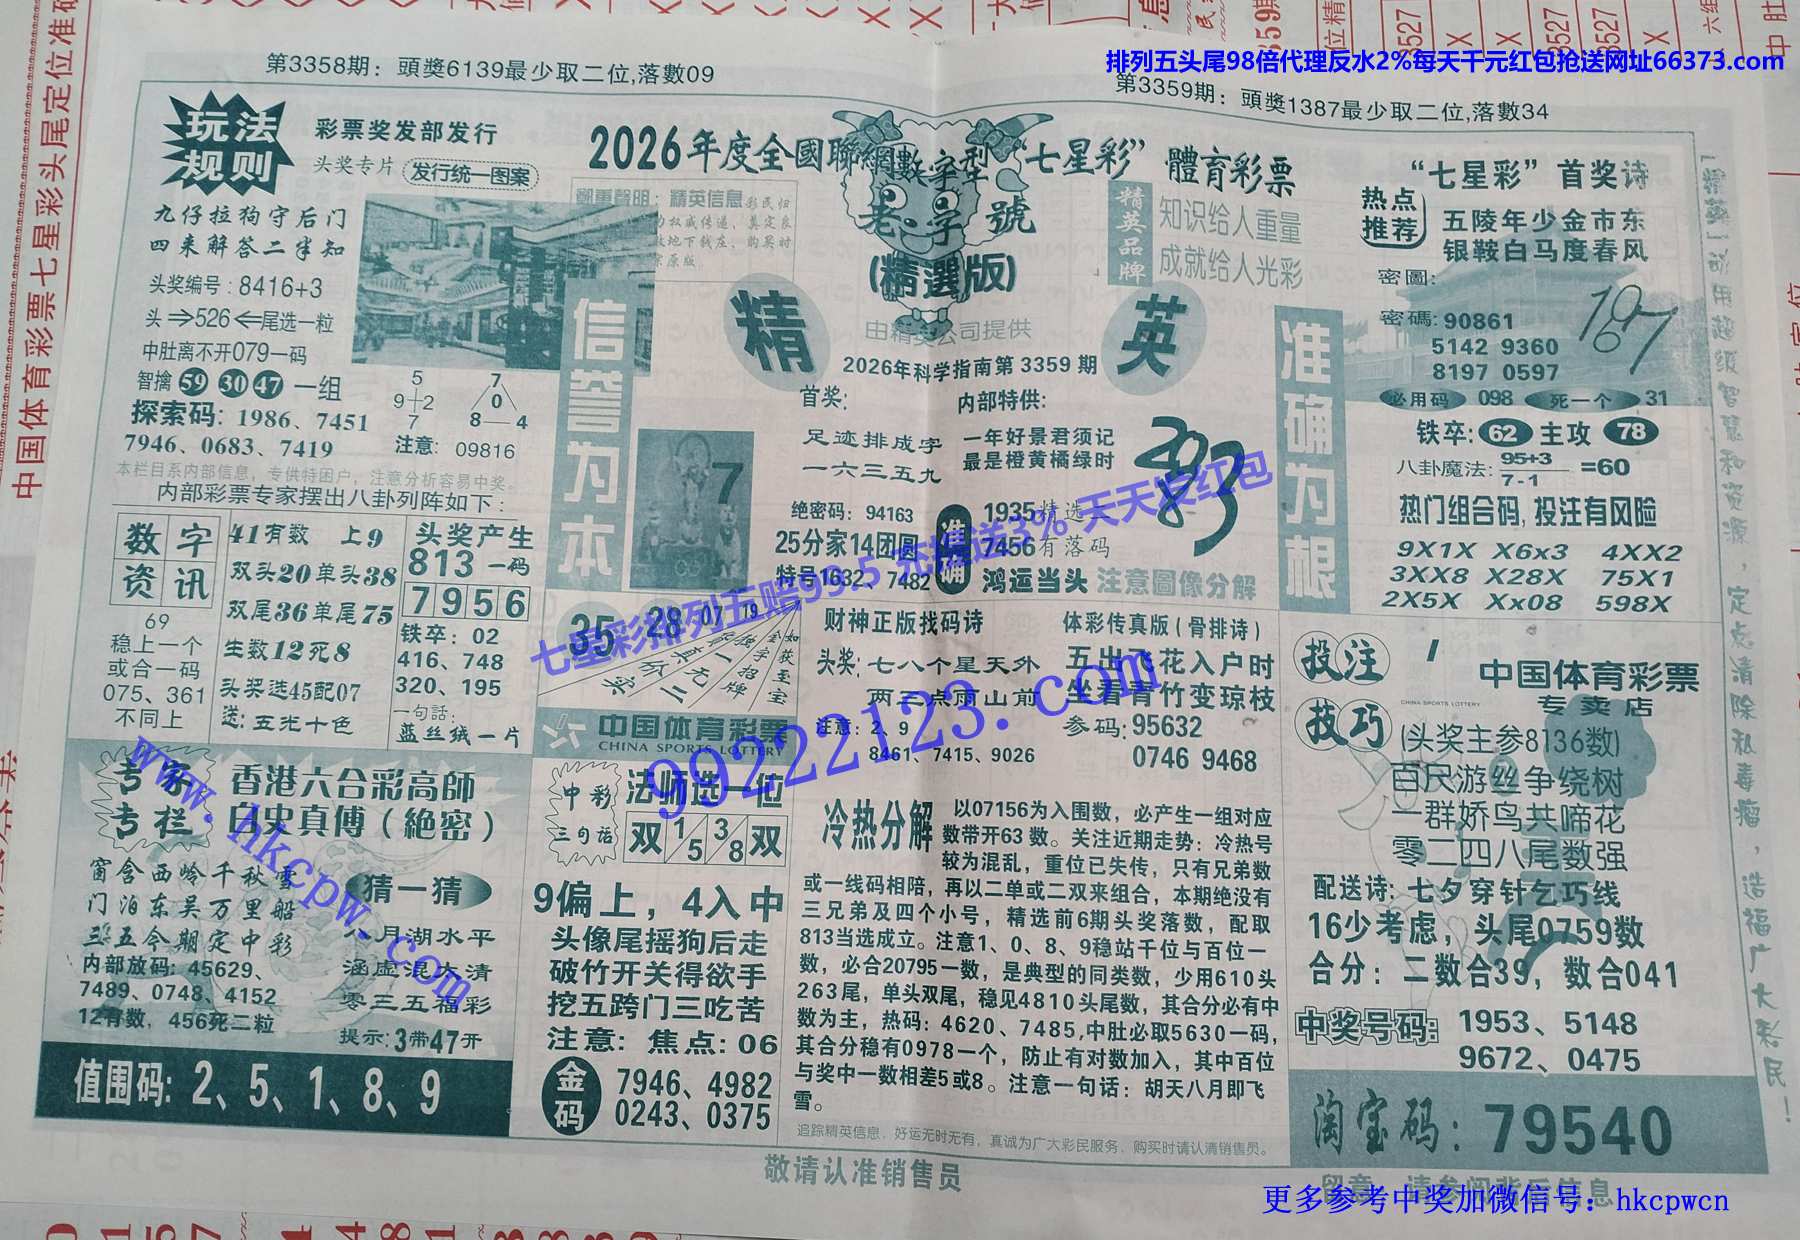 排列五头尾98倍代理反水2%每天千元红包抢送网址66373.com
第3358期：頭獎6139最少取二位,落數09
第3359期：頭獎1387最少取二位,落數34
玩法
规则
彩票奖发部发行
头奖专片
发行统一图案
九仔拉狗守后门
四来解答二半知
头奖编号：8416+3
头⇒526⇐尾选一粒
中肚离不开079一码
智擒 59 30 47 一组
探索码：1986、7451
7946、0683、7419
5
9+2
7
7
0
8 4
注意：09816
本栏目系内部信息，专供特困户，注意分析容易中奖。
内部彩票专家摆出八卦列阵如下：
2026年度全國聯網數字型“七星彩”體育彩票
鄭重聲明：精英信息
老字號
(精選版)
精英品牌
知识给人重量
成就给人光彩
信誉为本
精
英
由精英公司提供
2026年科学指南第3359期
准确为根
首奖：
足迹排成字
一六三五九
绝密码：94163
25分家14团圆
特号1632、7482
内部特供：
一年好景君须记
最是橙黄橘绿时
准确
1935精选一
7456有落码
鸿运当头 注意圖像分解
7
“七星彩”首奖诗
热点
推荐
五陵年少金市东
银鞍白马度春风
密圖：
密碼：90861
5142 9360
8197 0597
必用码 098 死一个 31
铁卒：62 主攻 78
八卦魔法：95+3
7-1
=60
热门组合码,投注有风险
9X1X X6x3 4XX2
3XX8 X28X 75X1
2X5X Xx08 598X
数字
资讯
69
稳上一个
或合一码
075、361
不同上
41有数 上9
双头20单头38
双尾36单尾75
生数12死8
头奖选45配07
送：五光十色
头奖产生
813一码
7956
铁卒：02
416、748
320、195
一句話：
蓝丝绒一片
35 28 07 19
中国体育彩票
CHINA SPORTS LOTTERY
财神正版找码诗
头奖：七八个星天外
两三点雨山前
注意：2、9
8461、7415、9026
体彩传真版(骨排诗)
五出飞花入户时
坐看青竹变琼枝
参码：95632
0746 9468
投注
技巧
中国体育彩票
CHINA SPORTS LOTTERY
专卖店
(头奖主参8136数)
百尺游丝争绕树
一群娇鸟共啼花
零二四八尾数强
配送诗：七夕穿针乞巧线
16少考虑，头尾0759数
合分：二数合39，数合041
中奖号码：1953、5148
9672、0475
淘宝码：79540
专家
专栏
香港六合彩高師
白史真傅(絶密)
窗含西岭千秋雪
门泊东吴万里船
三五今期定中彩
内部放码：45629、
7489、0748、4152
12有数，456死二粒
猜一猜
八月湖水平
涵虚混太清
零三五福彩
提示：3带47开
值围码：2、5、1、8、9
中彩
三句话
法师选一位
双 1/5 3/8 双
9偏上，4入中
头像尾摇狗后走
破竹开关得欲手
挖五跨门三吃苦
注意：焦点：06
金码
7946、4982
0243、0375
冷热分解
以07156为入围数，必产生一组对应
数带开63数。关注近期走势：冷热号
较为混乱，重位已失传，只有兄弟数
或一线码相陪，再以二单或二双来组合，本期绝没有
三兄弟及四个小号，精选前6期头奖落数，配取
813当选成立。注意1、0、8、9稳站千位与百位一
数，必合20795一数，是典型的同类数，少用610头
263尾，单头双尾，稳见4810头尾数，其合分必有中
数为主，热码：4620、7485,中肚必取5630一码，
其合分稳有0978一个，防止有对数加入，其中百位
与奖中一数相差5或8。注意一句话：胡天八月即飞
雪。
追踪精英信息，好运无时无有，真诚为广大彩民服务，购买时请认清销售员。
敬请认准销售员
中国体育彩票七星彩头尾定位准确
七星彩排列五赔99.5 充值送3% 天天发红包
99222123.com
www.hkcpw.com
更多参考中奖加微信号：hkcpwcn